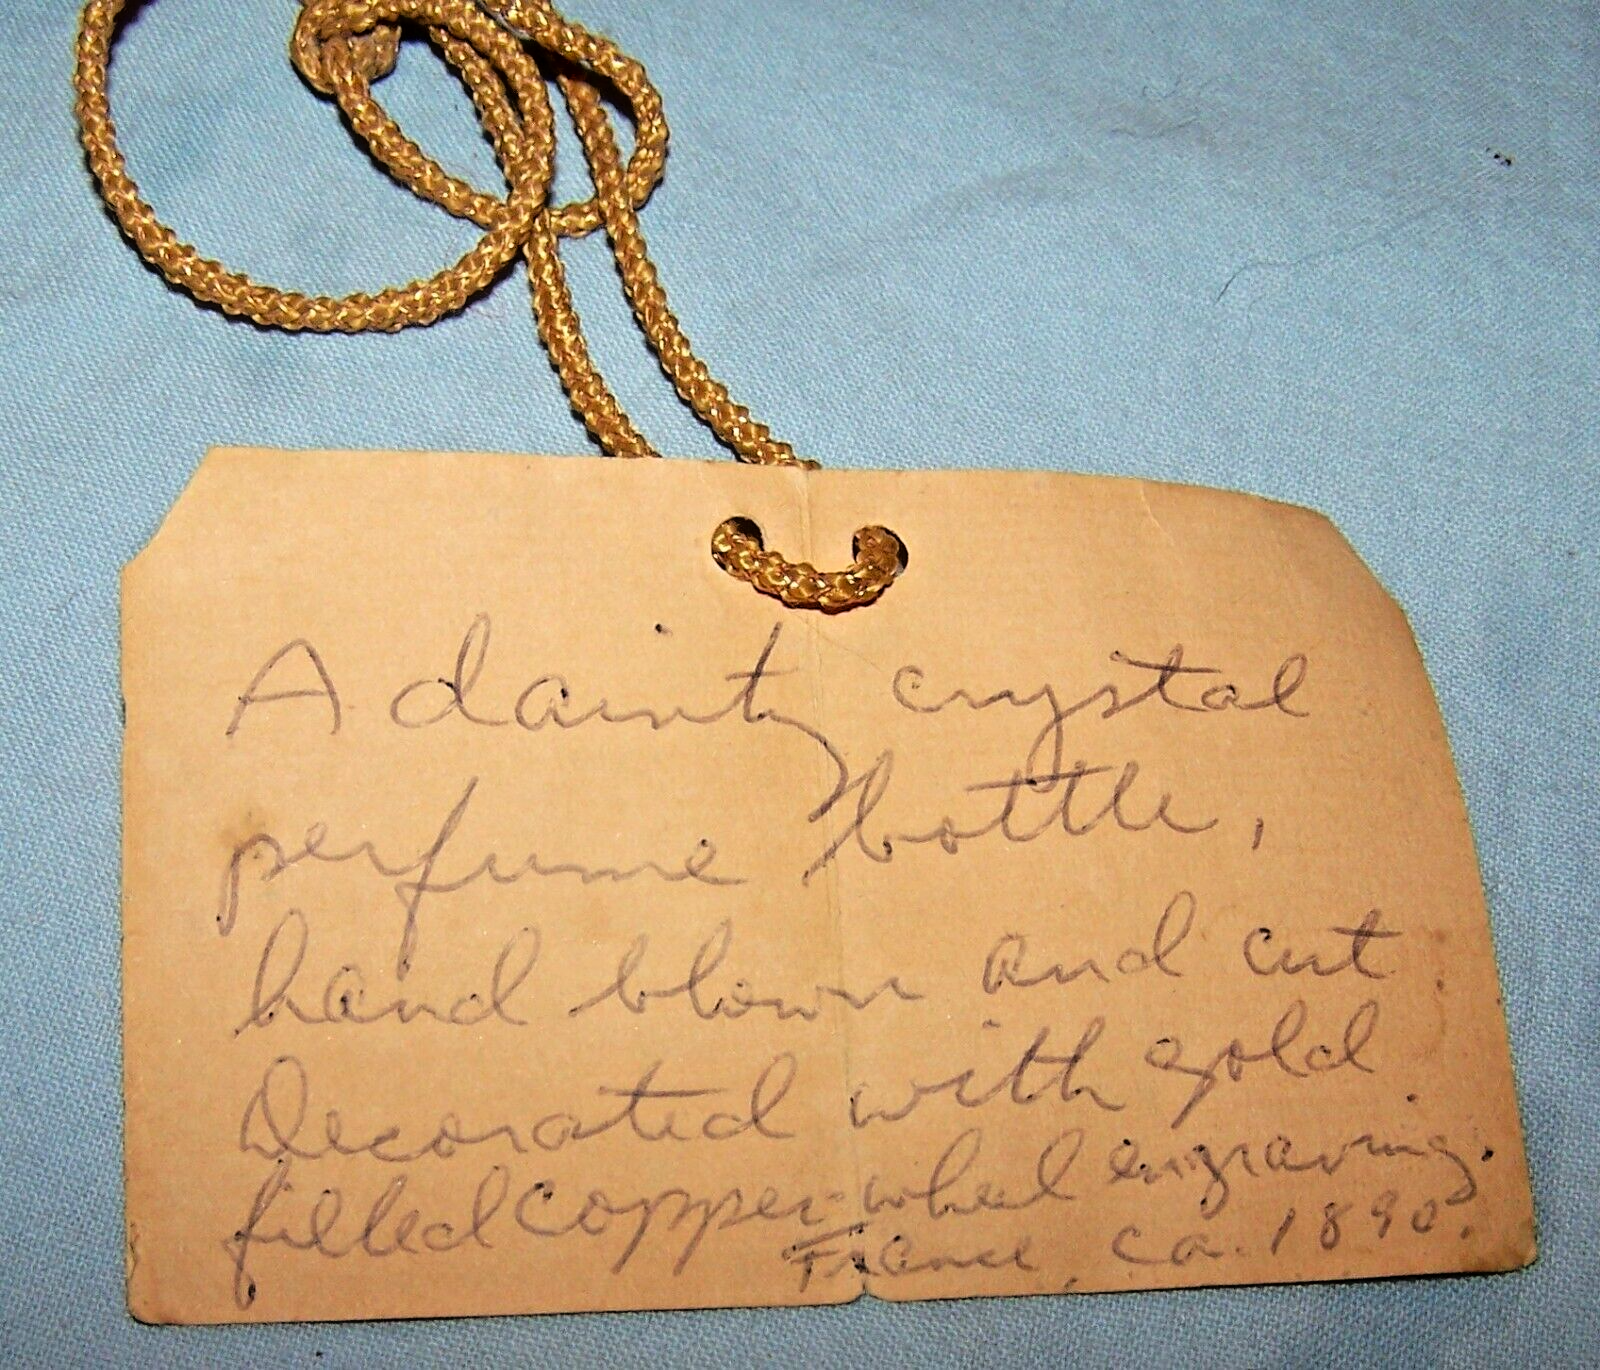 A dainty crystal
perfume bottle,
hand blown and cut.
Decorated with gold
filled copper-wheel engraving.
France, ca. 1890.